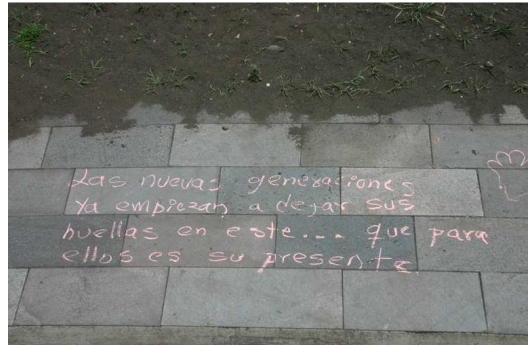 Las nuevas generaciones
ya empiezan a dejar sus
huellas en este... que para
ellos es su presente